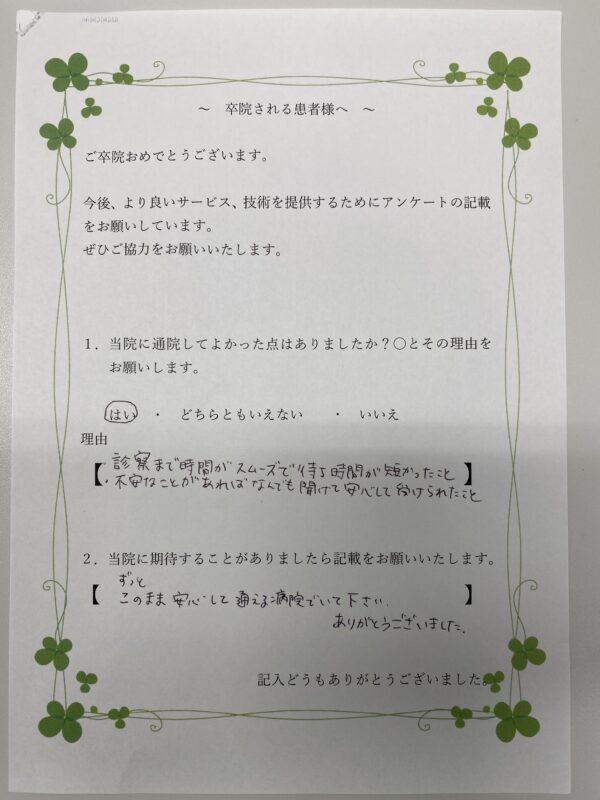 ～　卒院される患者様へ　～
ご卒院おめでとうございます。
今後、より良いサービス、技術を提供するためにアンケートの記載
をお願いしています。
ぜひご協力をお願いいたします。
１．当院に通院してよかった点はありましたか？〇とその理由を
お願いします。
はい　・　どちらともいえない　・　いいえ
理由
【・診察まで時間がスムーズで待ち時間が短かったこと
・不安なことがあればなんでも聞けて安心して受けられたこと】
２．当院に期待することがありましたら記載をお願いいたします。
ずっと
【このまま安心して通える病院でいて下さい。】
ありがとうございました。
記入どうもありがとうございました。